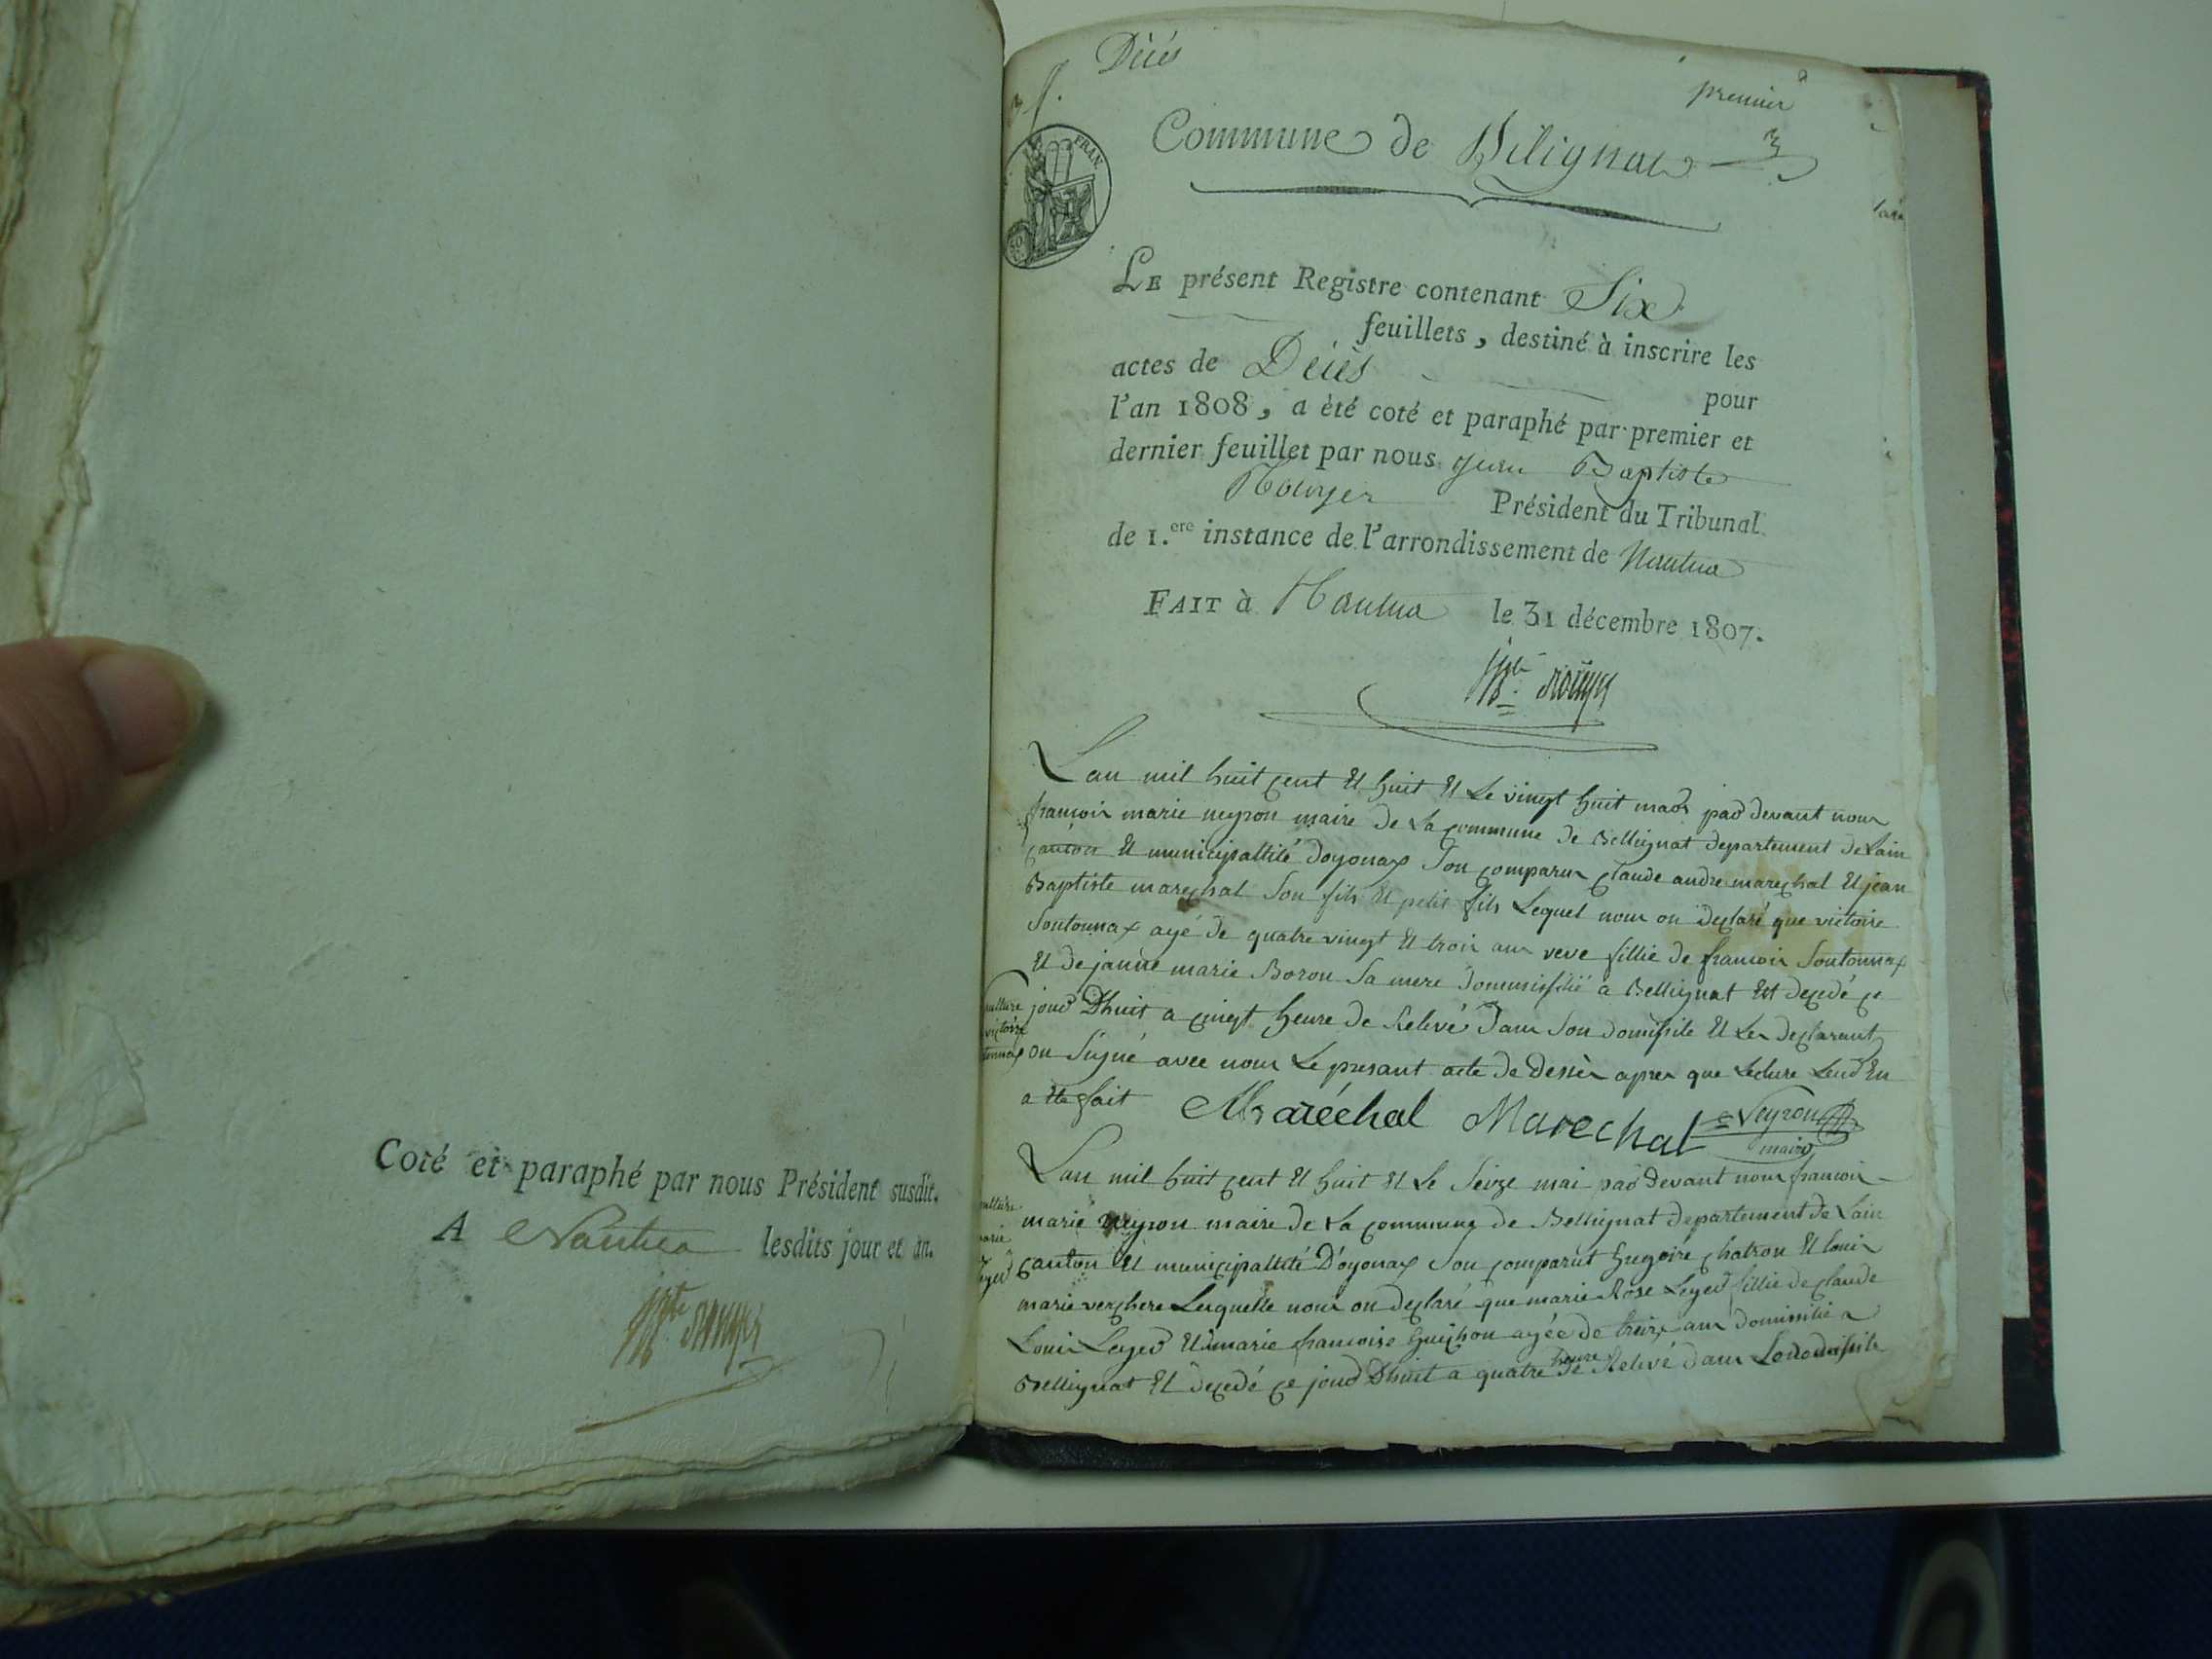 Coté et paraphé par nous Président susdit.
A Nantua lesdits jour et an.
Décés
premier
3
FRAN.
Commune de Bélignat
LE présent Registre contenant Six
feuillets, destiné à inscrire les
actes de Décès pour
l'an 1808, a été coté et paraphé par premier et
dernier feuillet par nous Jean Baptiste
Rouyer Président du Tribunal
de 1.ere instance de l'arrondissement de Nantua
FAIT à Nantua le 31 décembre 1807.
Lan mil huit cent et huit et le vingt huit mars par devant nous
francois marie neyron maire de la commune de Bellignat departement de Lain
canton et municipallité doyonax son comparus claude andre marechal et jean
Baptiste marechal son fils et petit fils Lequel nous on declaré que victoire
Soutonnax agé de quatre vingt et trois ans veve fillie de francois Soutonnax
et de janne marie Boron sa mere dommisilié a Bellignat est decedé ce
jour Dhuit a cinqt heure de Relevé dans son domisile et les declarant
on signé avec nous Le presant acte de dessès apres que lecture Leur en
a ete fait Maréchal Marechal Neyron
maire
Lan mil huit cent et huit et le seize mai par devant nous francois
marie neyron maire de la commune de Bellignat departement de Lain
canton et municipallité D'oyonax son comparut Gregoire chatron et louis
marie verchere Lesquelle nous on declaré que marie Rose Leger fillie de claude
Louis Leger et marie francoise Guichon agée de treize ans domisilié a
Bellignat et decedé ce jour Dhuit a quatre heure de Relevé dans